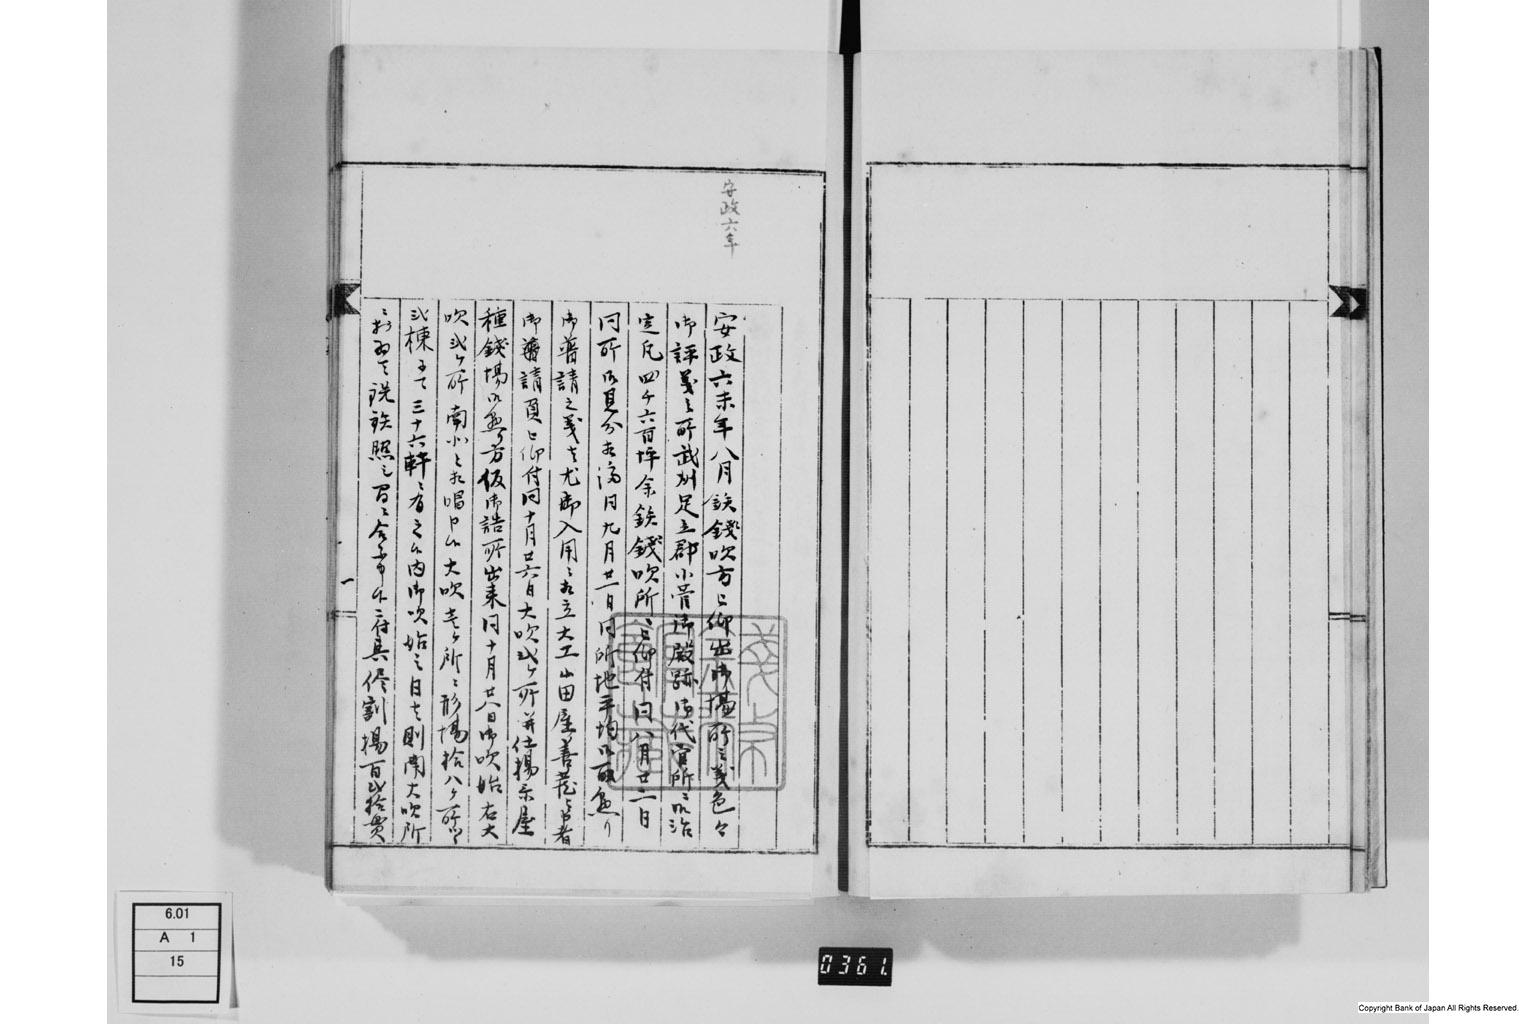 安政六年
安政六未年八月鉄錢吹方被仰出御場所之義色々
御評義之所武州足立郡小菅御殿跡御代官所ニ取治
定凡四千六百坪余鉄錢吹所ニ被仰付同八月廿二日
同所御見分相濟同九月廿一日同所地平均御取懸り
御普請之義者尤御入用ニ相立大工山田屋善蔵与申者
御普請負被仰付同十月廿六日大吹弐ヶ所并仕揚示屋
種錢場御取懸り方仮御詰所出来同十月廿八日御吹始右大
吹弐ヶ所南北与相唱申候大吹壱ヶ所ニ形場拾八ヶ所
弐棟ニて三十六軒ニ有之候内御吹始之日者則南大吹所
銑鉄
百弐拾貫
一
6.01
A 1
15
0361.
Copyright Bank of Japan All Rights Reserved.